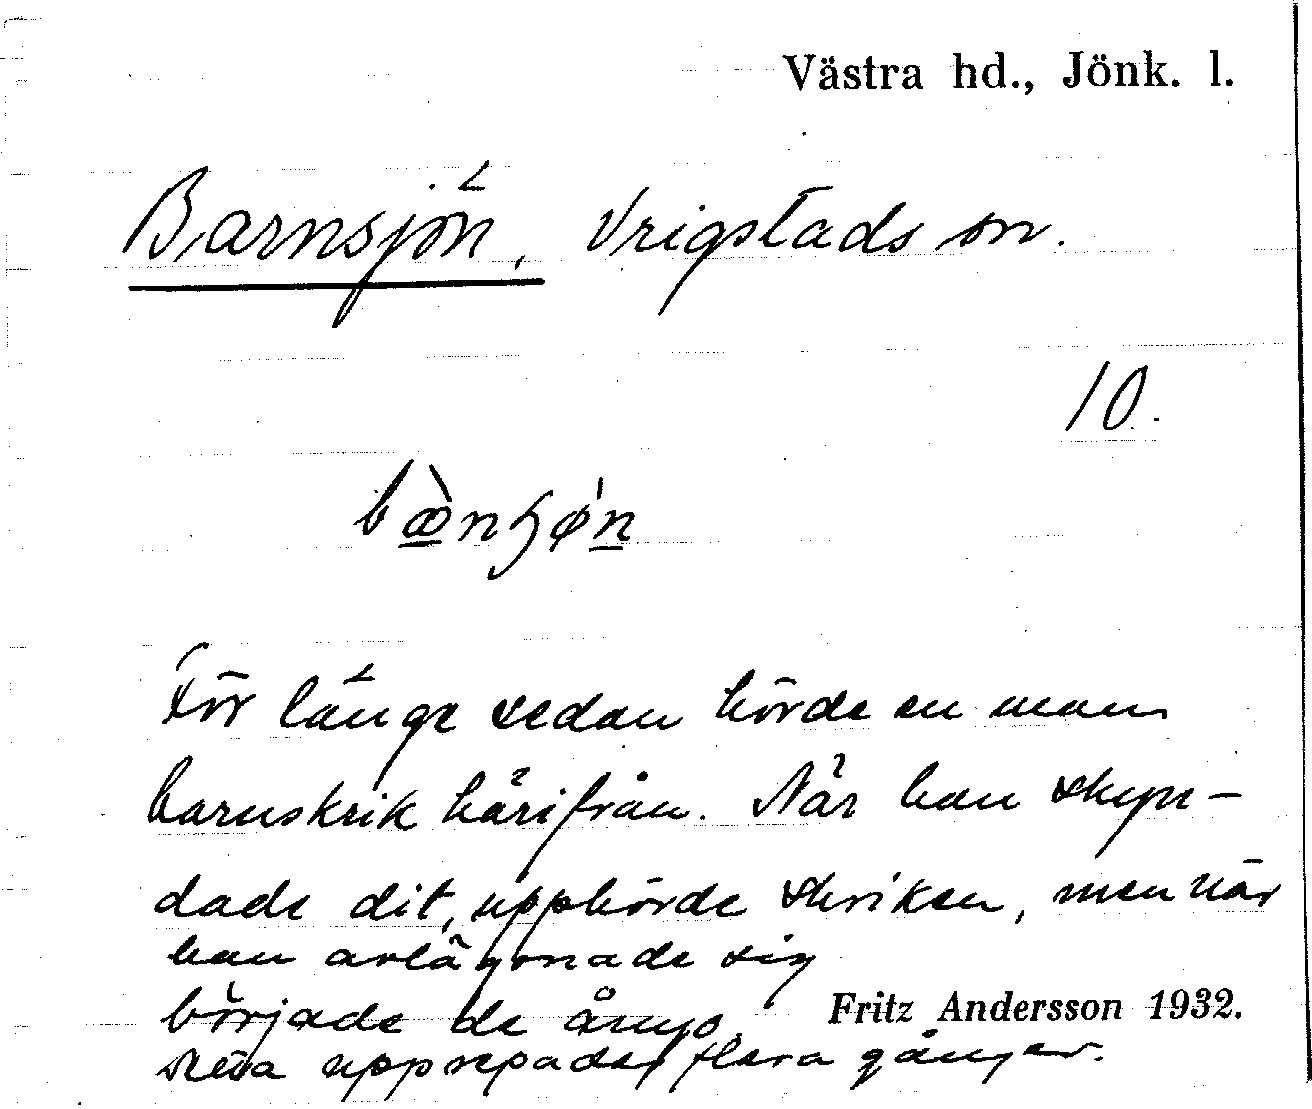 Västra hd., Jönk. l.
Barnsjön, Vrigstads sn.
10.
För länge sedan hörde en man
barnskrik härifrån. När han skyn-
dade dit, upphörde skriken, men när
han avlägsnade sig
började de ånyo.
Detta upprepades flera gånger.
Fritz Andersson 1932.